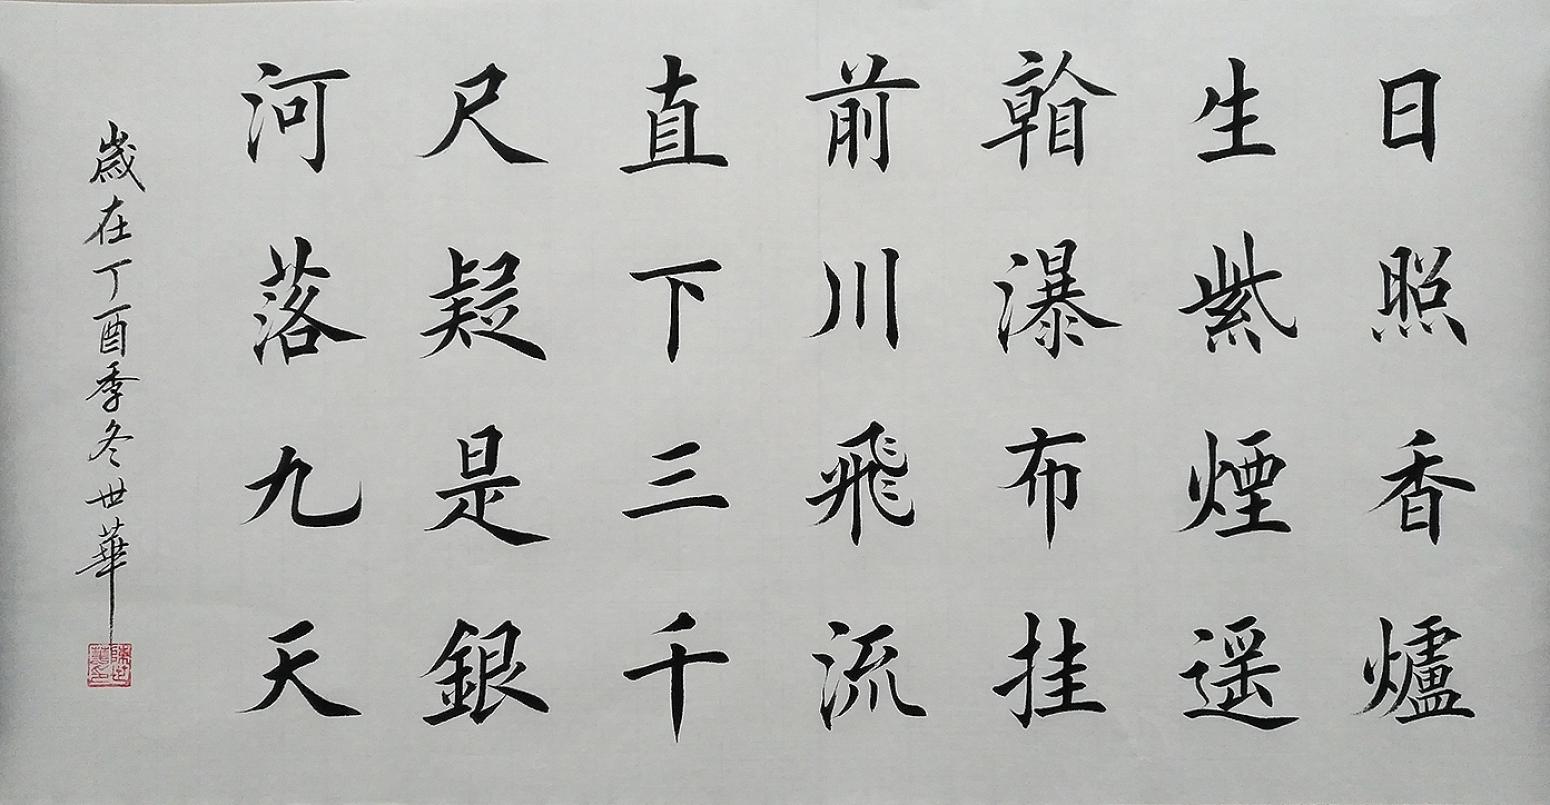 日照香爐
生紫煙遥
看瀑布挂
前川飛流
直下三千
尺疑是銀
河落九天
歲在丁酉季冬世華
陳世華印